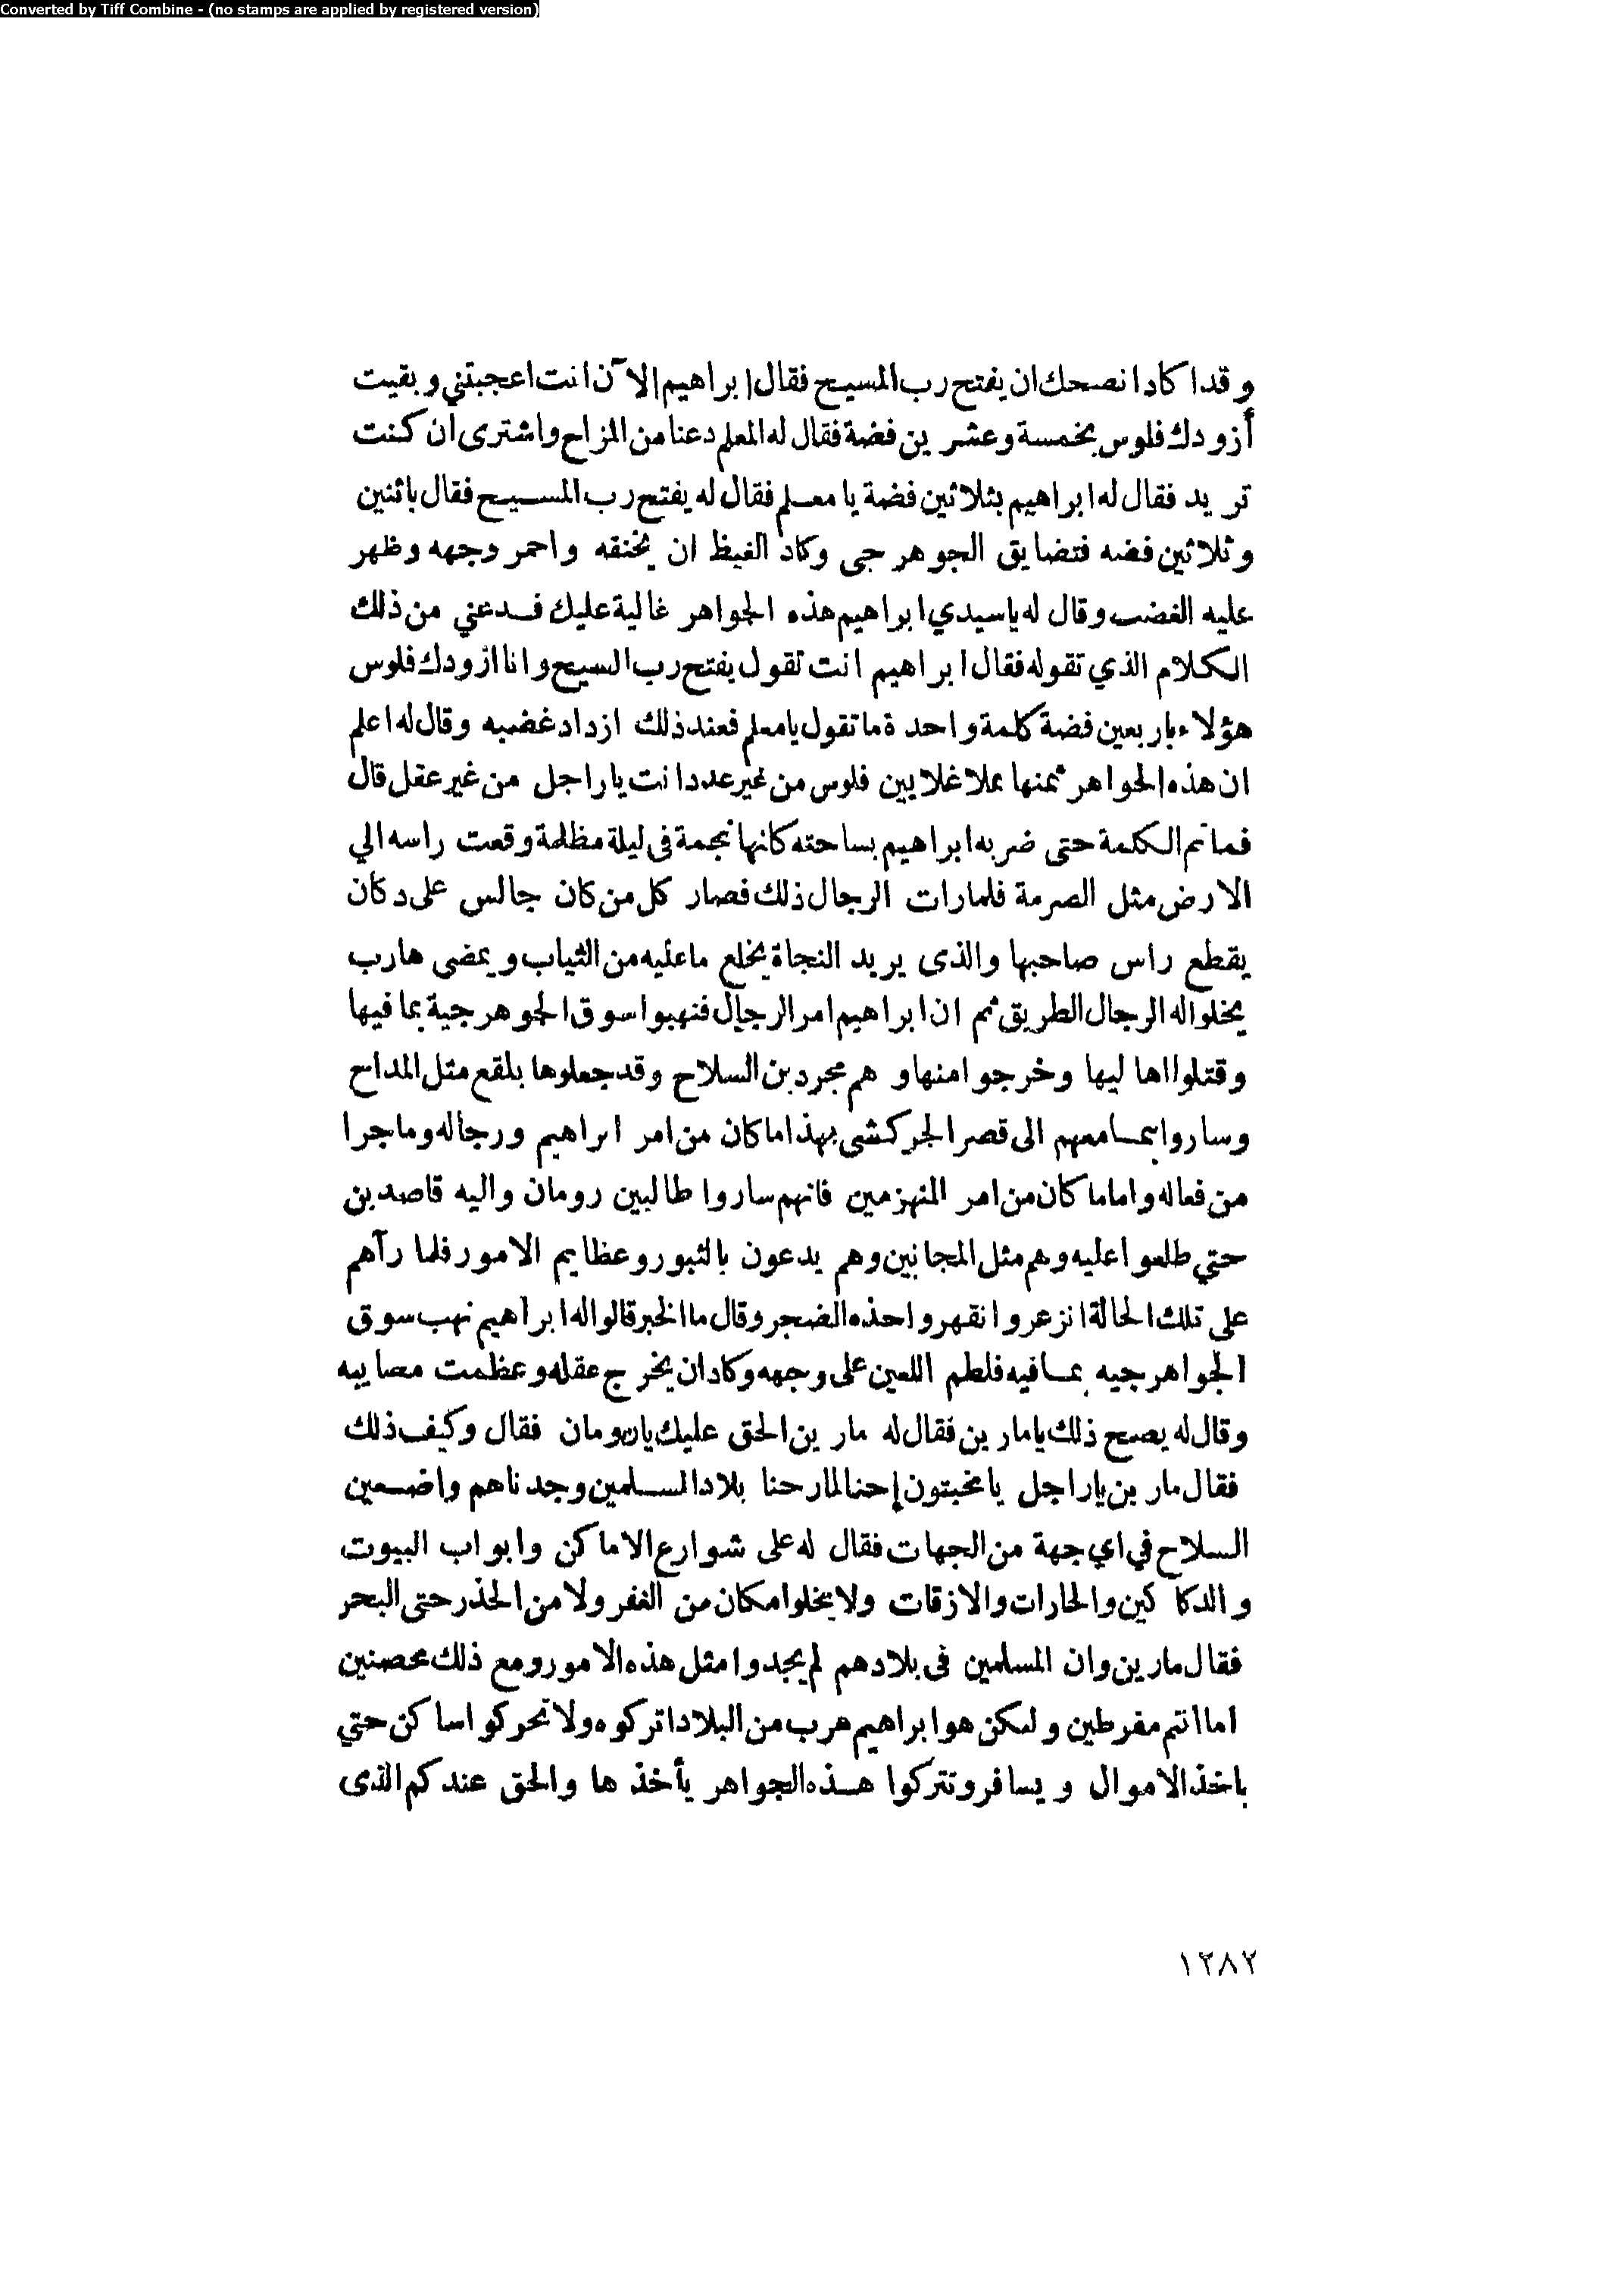 Converted by Tiff Combine - (no stamps are applied by registered version)
وقد اكاد انصحك ان يفتح رب المسيح فقال ابراهيم الآن انت اعجبتني وبقيت
أزودك فلوس بخمسة وعشرين فضة فقال له المعلم دعنا من المزاح واشترى ان كنت
تريد فقال له ابراهيم بثلاثين فضة يا معلم فقال له يفتح رب المسيح فقال باثنين
وثلاثين فضه فتضايق الجوهرجى وكاد الغيظ ان يخنقه واحمر وجهه وظهر
عليه الغضب وقال له ياسيدي ابراهيم هذه الجواهر غالية عليك فدعني من ذلك
الكلام الذي تقوله فقال ابراهيم انت تقول يفتح رب المسيح وانا ازودك فلوس
هؤلاء باربعين فضة كلمة واحدة ما تقول يا معلم فعند ذلك ازداد غضبه وقال له اعلم
ان هذه الجواهر ثمنها يملا غلايين فلوس من غير عدد انت يا راجل من غير عقل قال
فما تم الكلمة حتى ضربه ابراهيم بساحته كانها نجمة فى ليلة مظلمة وقعت راسه الي
الارض مثل الصرمة فلما رات الرجال ذلك فصار كل من كان جالس على دكان
يقطع راس صاحبها والذى يريد النجاة يخلع ما عليه من الثياب ويمضى هارب
يخلوا له الرجال الطريق ثم ان ابراهيم امر الرجال فنهبوا سوق الجوهرجية بما فيها
وقتلوا اهاليها وخرجوا منها وهم مجردين السلاح وقد جعلوها بلقع مثل المداح
وساروا بما معهم الى قصر الجركشى بهذا ما كان من امر ابراهيم ورجاله وما جرا
من فعاله واما ما كان من امر المنهزمين فانهم ساروا طالبين رومان واليه قاصدين
حتي طلعوا عليه وهم مثل المجانين وهم يدعون بالثبور وعظايم الامور فلما رآهم
على تلك الحالة انزعر وانقهر واخذه الضجر وقال ما الخبر قالوا له ابراهيم نهب سوق
الجواهرجيه بما فيه فلطم اللعين على وجهه وكاد ان يخرج عقله وعظمت مصايبه
وقال له يصح ذلك يا مارين فقال له مارين الحق عليك يا رومان فقال وكيف ذلك
فقال مارين يا راجل يا مخبتون إحنا لما رحنا بلاد المسلمين وجدناهم واضعين
السلاح في اي جهة من الجهات فقال له على شوارع الاماكن وابواب البيوت
والدكاكين والحارات والازقات ولا يخلوا مكان من الغفر ولا من الحذر حتى البحر
فقال مارين وان المسلمين فى بلادهم لم يجدوا مثل هذه الامور ومع ذلك محصنين
اما انتم مفرطين ولكن هو ابراهيم هرب من البلاد اتركوه ولا تحركوا ساكن حتي
ياخذ الاموال ويسافر وتتركوا هذه الجواهر يأخذها والحق عندكم الذى
١٢٨٢